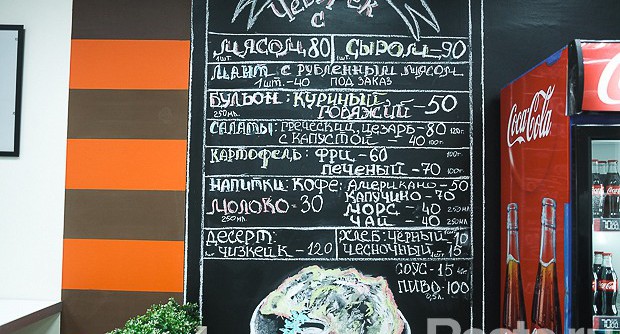 Чебурек
с
мясом 80 сыром 90
1шт. 1шт.
Мант с рубленным мясом
1шт.-40 под заказ
Бульон: куриный,
говяжий -50
250мл.
Салаты: греческий, цезарь-80 120г.
с капустой - 40 100г.
Картофель: фри -60
печеный -70 100г.
Напитки: кофе: американо -50
капучино -70
молоко -30 морс - 40 250мл
250мл чай - 40 250мл
Десерт: хлеб: чёрный, 10
чизкейк -120 чесночный, 15
соус -15
пиво -100
0,5л.
Coca-Cola
Coca-Cola